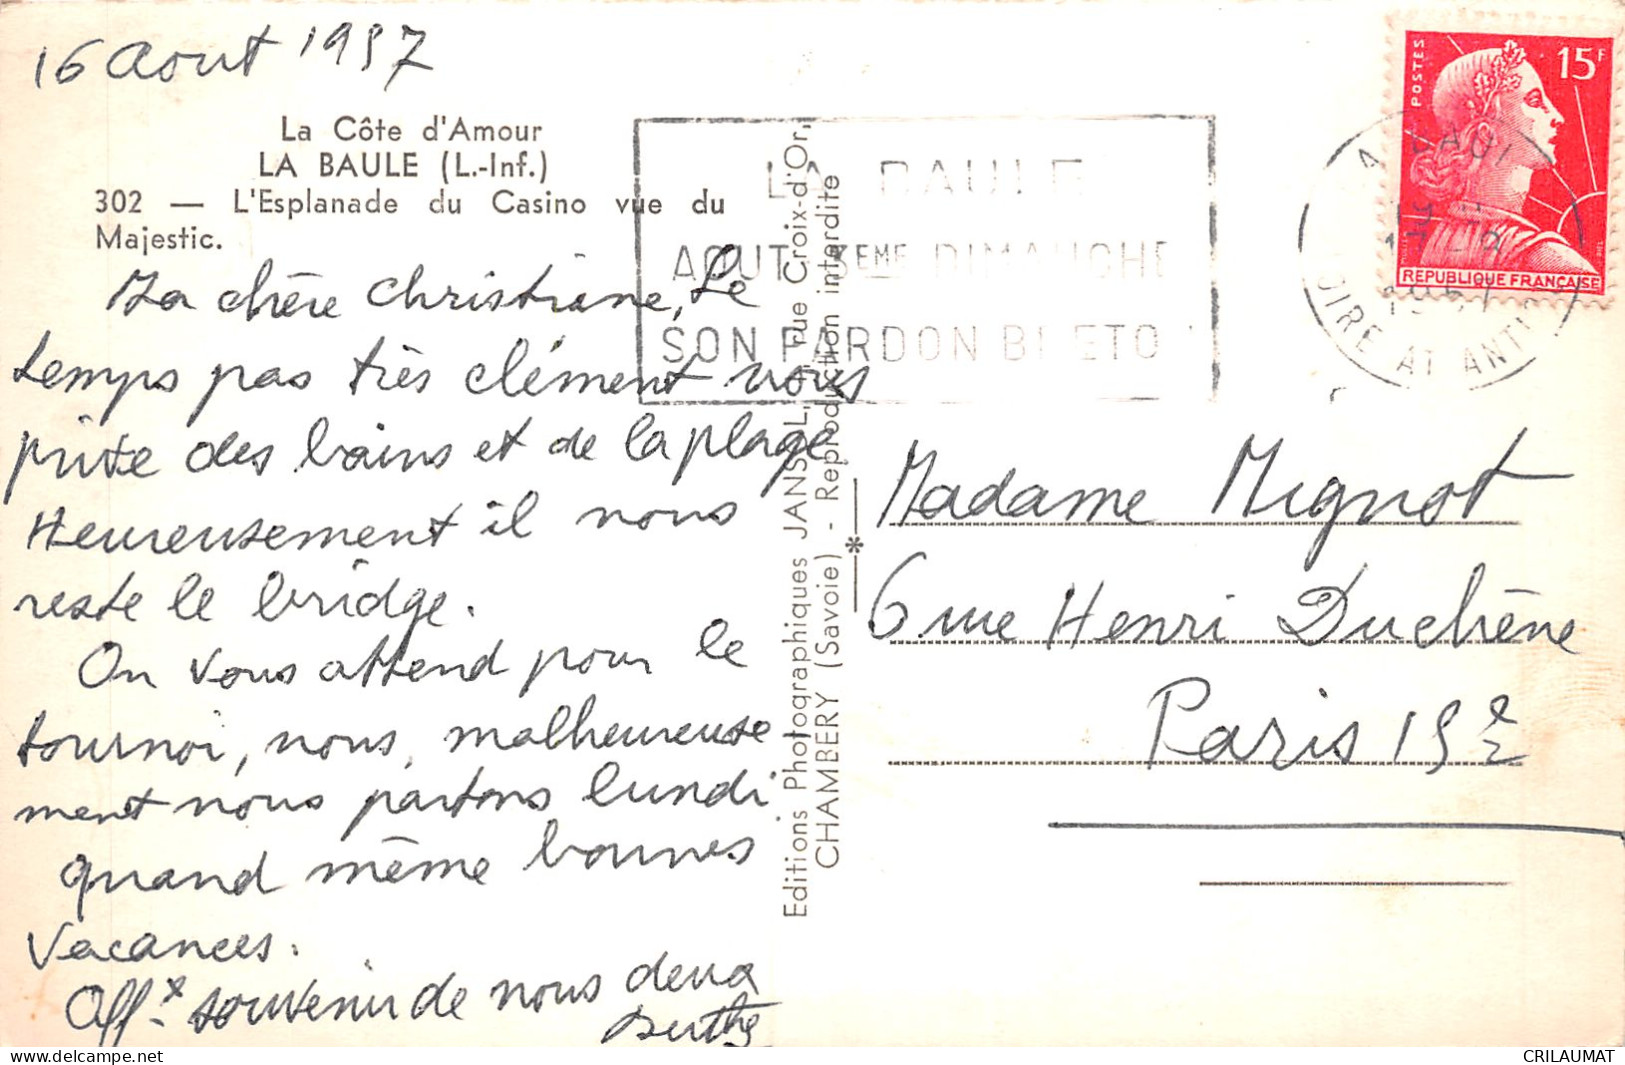 16 Aout 1957
La Côte d'Amour
LA BAULE (L.-Inf.)
302 — L'Esplanade du Casino vue du
Majestic.
Ma chère Christiane, Le
temps pas très clément nous
prive des bains et de la plage
Heureusement il nous
reste le bridge.
On vous attend pour le
tournoi, nous, malheureuse
ment nous partons lundi
quand même bonnes
Vacances.
Aff.x souvenir de nous deux
Berthe
Editions Photographiques JANSOL, rue Croix-d'Or,
CHAMBERY (Savoie) - Reproduction interdite
LA BAULE
AOUT 3EME DIMANCHE
SON PARDON BRETON
POSTES
15F
REPUBLIQUE FRANÇAISE
LOIRE ATLANTIQUE
Madame Mignot
6 rue Henri Duchêne
Paris 15e
delcampe.net
CRILAUMAT